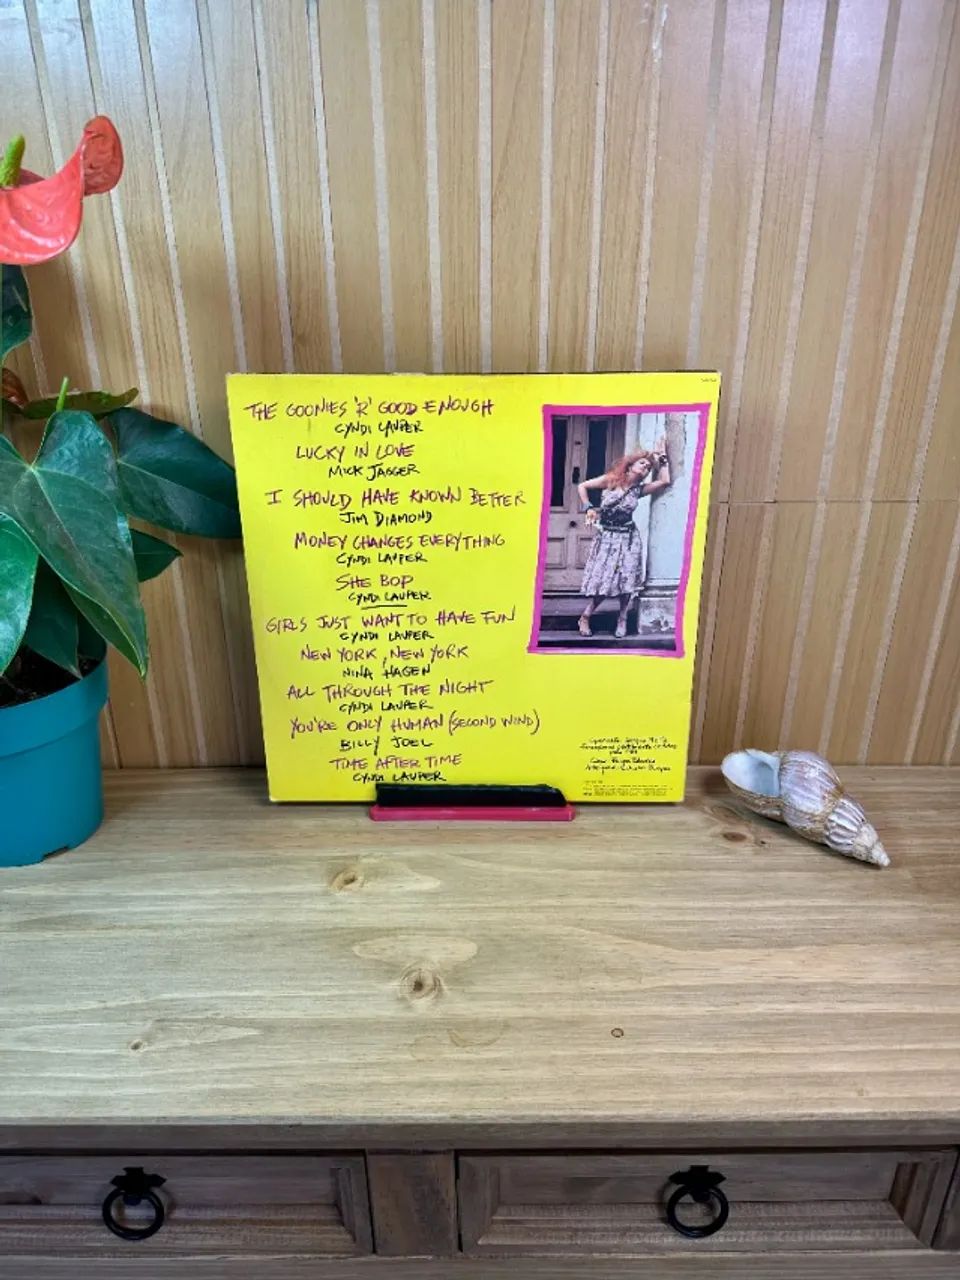 THE GOONIES 'R' GOOD ENOUGH
CYNDI LAUPER
LUCKY IN LOVE
MICK JAGGER
I SHOULD HAVE KNOWN BETTER
JIM DIAMOND
MONEY CHANGES EVERYTHING
CYNDI LAUPER
SHE BOP
CYNDI LAUPER
GIRLS JUST WANT TO HAVE FUN
CYNDI LAUPER
NEW YORK, NEW YORK
NINA HAGEN
ALL THROUGH THE NIGHT
CYNDI LAUPER
YOU'RE ONLY HUMAN (SECOND WIND)
BILLY JOEL
TIME AFTER TIME
CYNDI LAUPER